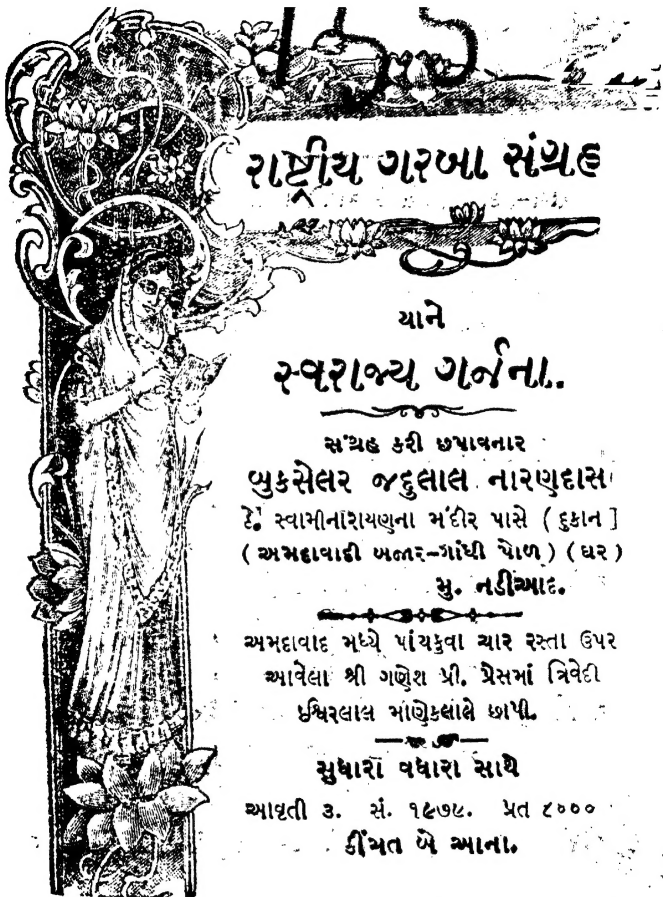 155
રાષ્ટ્રીય ગરબા સંગ્રહ
યાને
સ્વરાજ્ય ગર્જના.
સંગ્રહ કરી છપાવનાર
બુકસેલર જદુલાલ નારણદાસ
ઠે. સ્વામીનારાયણના મંદીર પાસે ( દુકાન ]
( અમદાવાદી બજાર-ગાંધી પોળ ) ( ઘર )
મુ. નડીઆદ.
અમદાવાદ મધ્યે પાંચકુવા ચાર રસ્તા ઉપર
આવેલા શ્રી ગણેશ પ્રી. પ્રેસમાં ત્રિવેદી
ઇશ્વિરલાલ માણેકલાલે છાપી.
સુધારા વધારા સાથે
આવૃતી ૩. સં. ૧૯૭૯. પ્રત ૮૦૦૦
કીંમત બે આના.